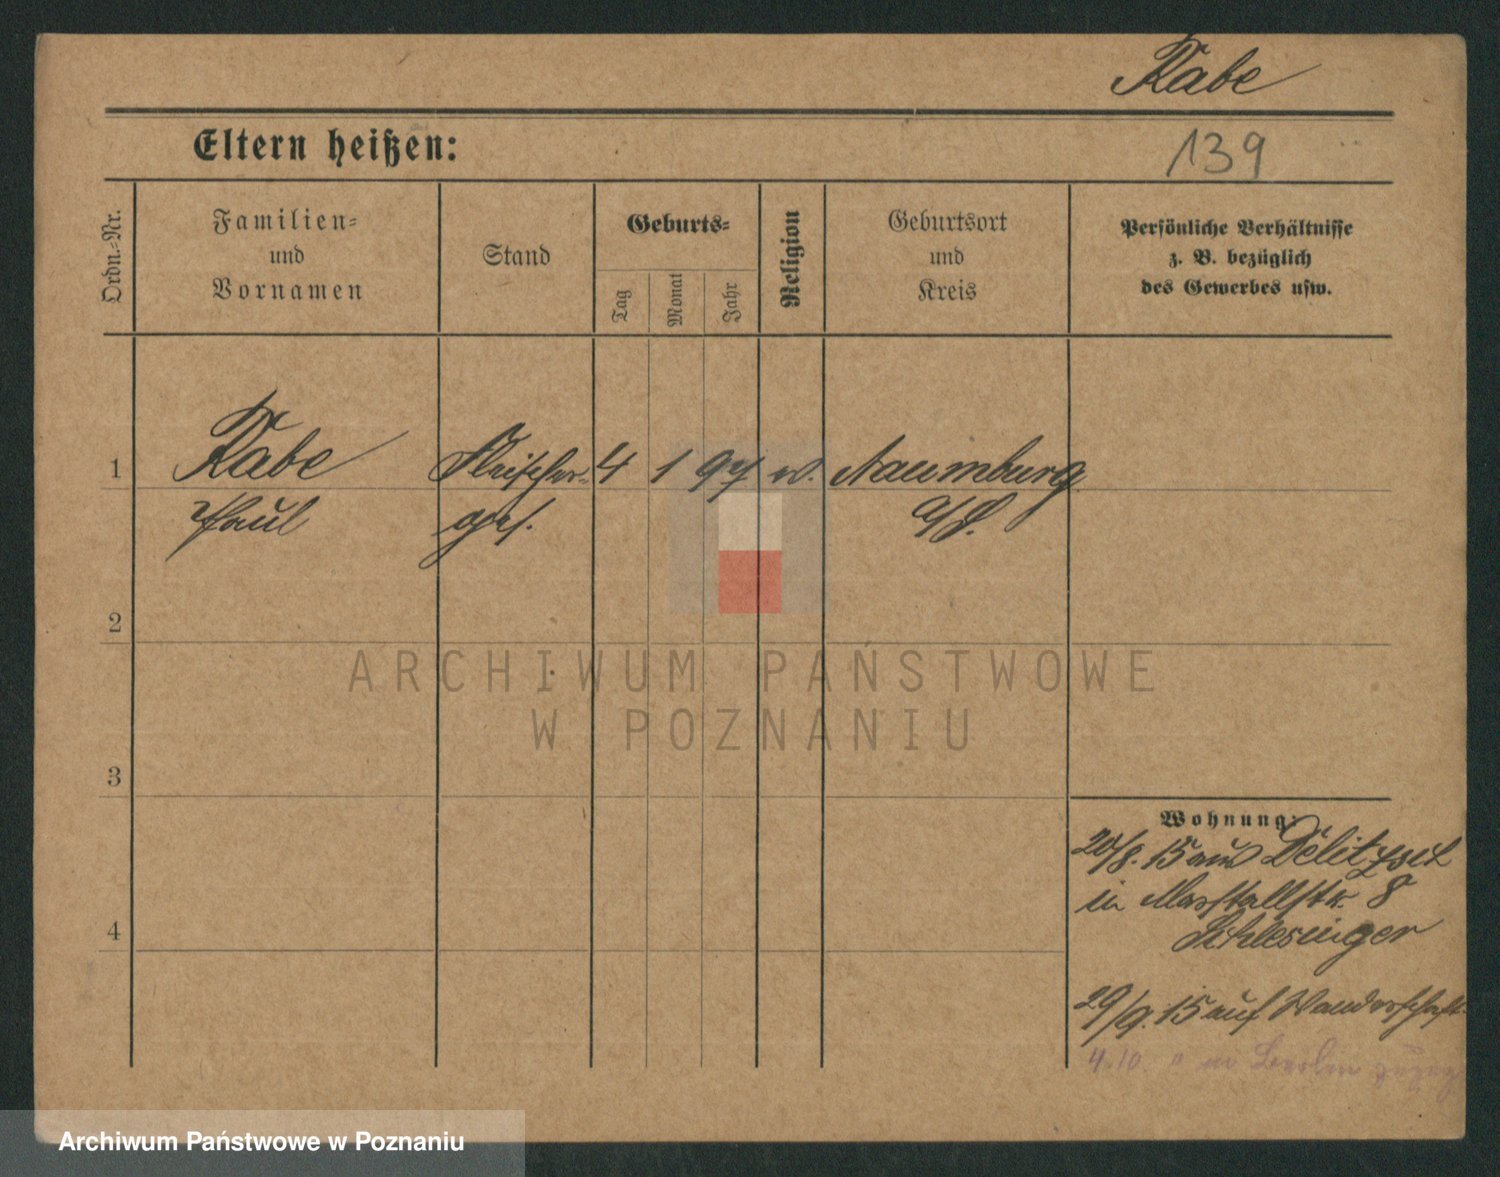 Rabe
Eltern heißen:
139
Ordn.=Nr.
Familien=
und
Vornamen
Stand
Geburts=
Tag
Monat
Jahr
Religion
Geburtsort
und
Kreis
Persönliche Verhältnisse
z. B. bezüglich
des Gewerbes usw.
1
Rabe
Paul
Fleischer-
ges.
4
1
97
ev.
Naumburg
a/S.
2
3
4
ARCHIWUM PAŃSTWOWE
W POZNANIU
Wohnung:
20/8. 15 aus Delitzsch
in Marstallstr. 8
Schlesinger
29/9. 15 auf Wanderschaft
4.10. in Berlin
Archiwum Państwowe w Poznaniu